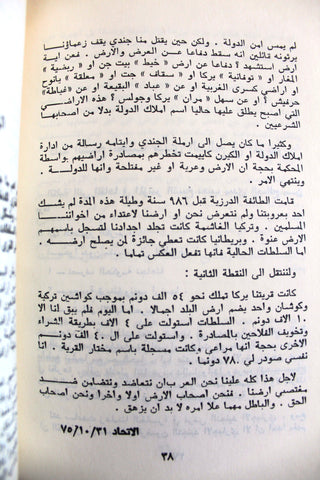 لم يمس امن الدولة . ولكن حين يقتل منا جندي يقف زعماؤنا
يرثونه قائلين انه سقط دفاعا عن العرض والارض . فعن اية
ارض استشهد ؟ دفاعا عن ارض « خيط » بيت جن او « ربضية »
المغار او « توفانية » يركا او « سقاف » جت او « معلقة » يانوح
او اراضي كسرى الغربية او عن « عباد » البقيعة او عن « غباطة »
حرفيش ؟ او عن سهل « مران » يركا وجولس ؟ هذه الاراضي
التي اصبح يطلق عليها حاليا اسم املاك الدولة بدلا من اصحابها
الشرعيين .
وكثيرا ما كان يصل الى ارملة الجندي وايتامه رسالة من ادارة
املاك الدولة او الكيرن كاييمت تخطرهم بمصادرة اراضيهم بواسطة
المحكمة بحجة ان الارض وعرية او غير مفتلحة وانها للدولة ..
وينتهي الامر .
قامت الطائفة الدرزية قبل ٩٨٦ سنة وطيلة هذه المدة لم يشك
احد بعروبتنا ولم نتعرض نحن او ارضنا لاعتداء من اخواننا
المسلمين . وتركيا الغاشمة كانت تجلد اجدادنا لتسجل باسمهم
الارض عنوة . وبريطانيا كانت تعطي جائزة لمن يصلح ارضه .
اما السلطات الحالية فانها تفعل العكس تماما .
ولننتقل الى النقطة الثانية :
كانت قريتنا يركا تملك نحو ٥٤ الف دونم بموجب كواشين تركية
وكوشان واحد يضم ارض البلد اجمالا . اما اليوم فلم يبق لنا الا
١٠ الاف دونم . السلطات استولت على ٤ الاف بطريقة الشراء
وتخويف الفلاحين بالمصادرة . واستولت على ال ٤٠ الف دونم
الاخرى بحجة انها مراعي وكانت مسجلة باسم مختار القرية . انا
نفسي صودر لي ٧٨٠ دونما .
لاجل هذا كله علينا نحن العرب ان نتعاضد ونتضامن ضد
مغتصبي ارضنا . فنحن اصحاب الارض اولا واخرا ونحن اصحاب
الحق . والباطل مهما علا امره لا بد ان يزهق .
الاتحاد ٧٥/١٠/٣١
٣٨